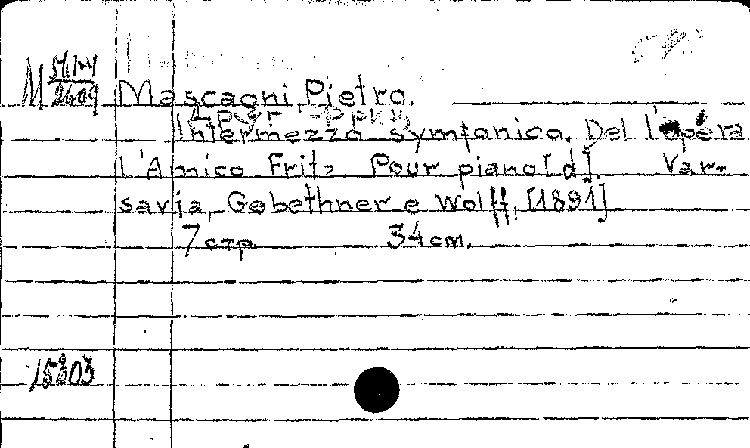 Mascagni, Pietro.
Intermezzo symfonico. Del l'opéra
l'Amico Fritz Pour piano [d]. Var-
savia, Gebethner e Wolff, [1891]
7 стр 34 cm.
15303